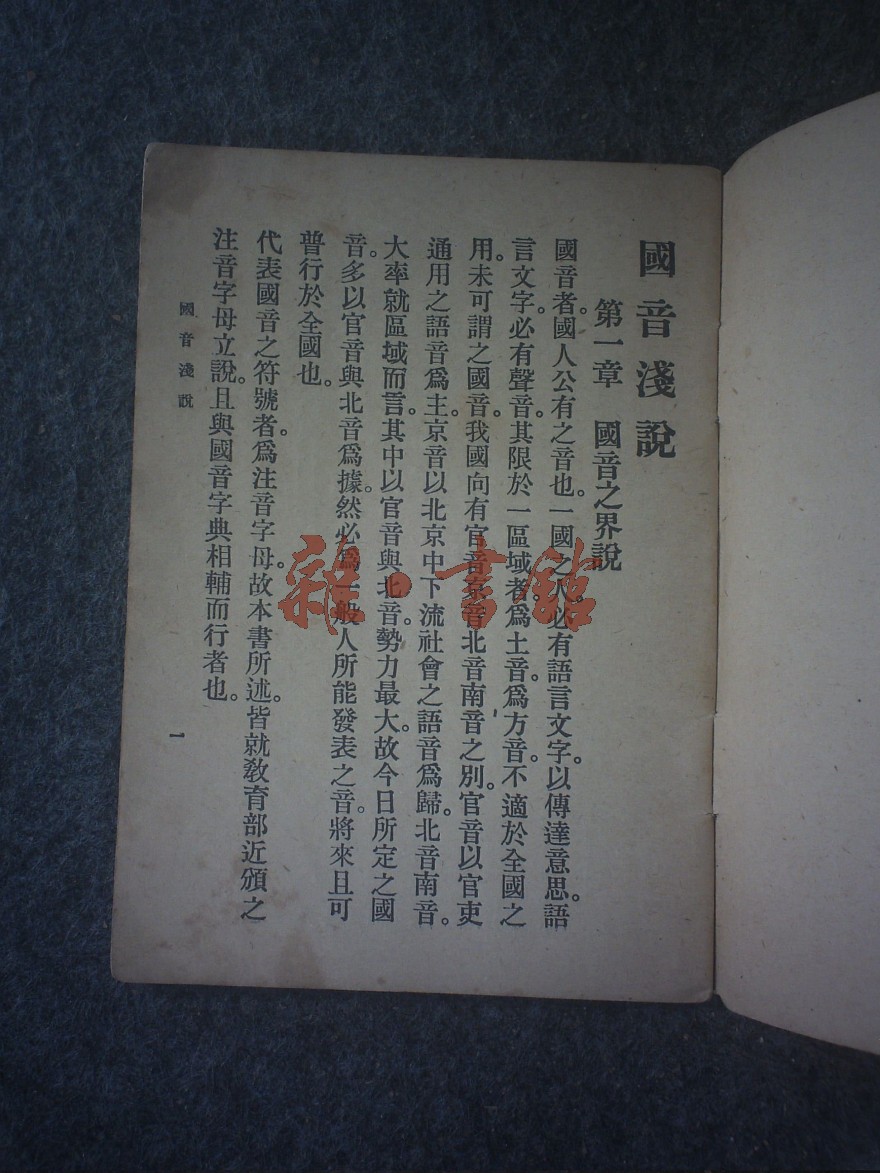 國音淺說
第一章　國音之界說
國音者。國人公有之音也。一國之人。必有語言文字。以傳達意思。語
言文字。必有聲音。其限於一區域者。爲土音。爲方音。不適於全國之
用。未可謂之國音。我國向有官音京音北音南音之別。官音以官吏
通用之語音爲主。京音以北京中下流社會之語音爲歸。北音南音。
大率就區域而言。其中以官音與北音。勢力最大。故今日所定之國
音。多以官音與北音爲據。然必爲一般人所能發表之音。將來且可
普行於全國也。
代表國音之符號者。爲注音字母。故本書所述。皆就敎育部近頒之
注音字母立說。且與國音字典相輔而行者也。
國音淺說
一
雜·書館